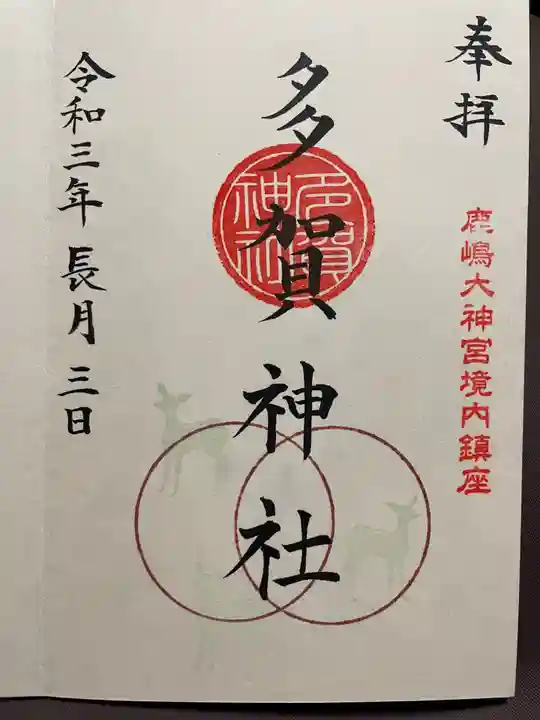 奉拝
鹿嶋大神宮境内鎮座
多賀神社
多賀神社
令和三年長月三日